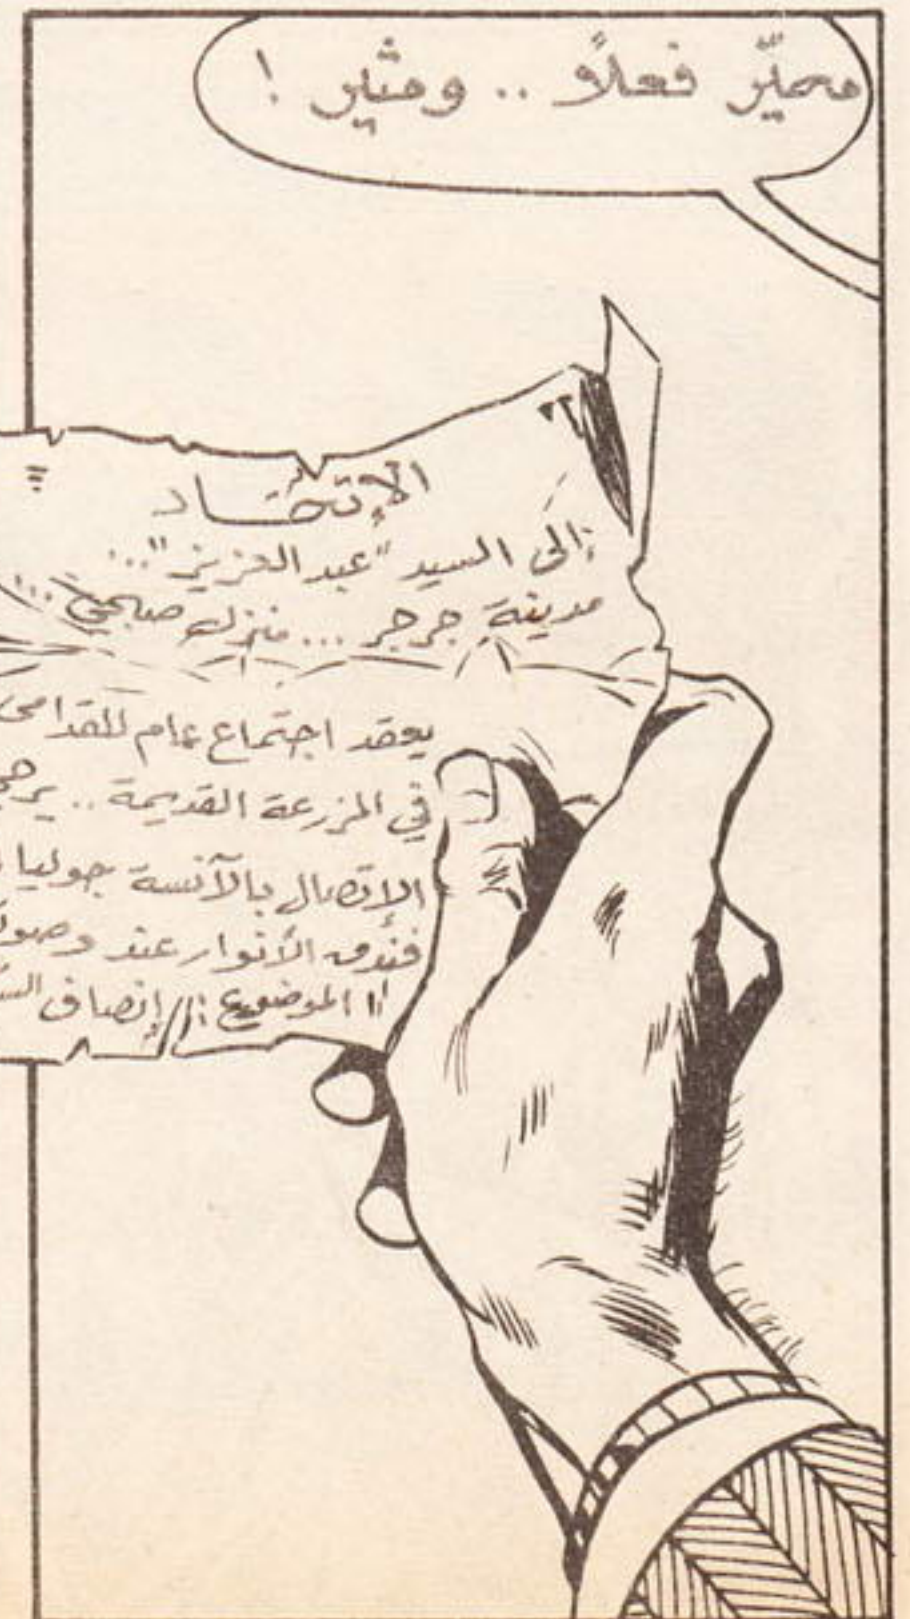 محيّر فعلاً .. ومثير !
الإتحاد
إلى السيد "عبد العزيز"...
مدينة جرجر ... منزل صبحي ...
يعقد اجتماع عام للقدامى
في المزرعة القديمة .. يرجى
الإتصال بالآنسة جوليا
فندق الأنوار عند
"الموضوع : إنصاف